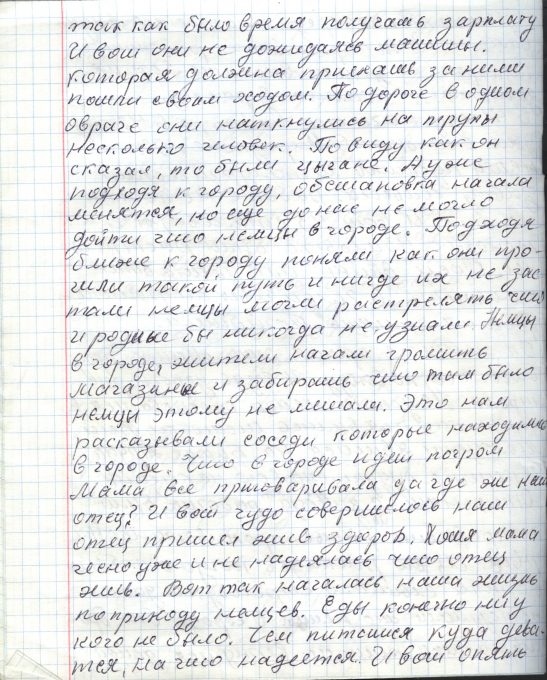 так как было время получать зарплату
И вот они не дожидаясь машины.
которая должна приехать за ними
пошли своим ходом. По дороге в одном
овраге они наткнулись на трупы
несколько человек. По виду как он
сказал, то были цыгане. А уже
подходя к городу, обстановка начала
менятся, но еще до нас не могло
дойти что немцы в городе. Подходя
ближе к городу поняли как они про-
шли такой путь и нигде их не зас-
тали немцы могли растрелять что
и родные бы никогда не узнали. Немцы
в городе, жители начали громить
магазины и забирать что там было
немцы этому не мешали. Это нам
расказывали соседи которые находились
в городе. Что в городе идет погром
Мама все приговаривала да где же наш
отец? И вот чудо совершилось наш
отец пришел жив здоров. Хотя мама
чесно уже и не надеялась что отец
жив. Вот так началась наша жизнь
по приходу немцев. Еды конечно ни у
кого не было. Чем питатся куда дева-
тся, на что надеется. И вот опять